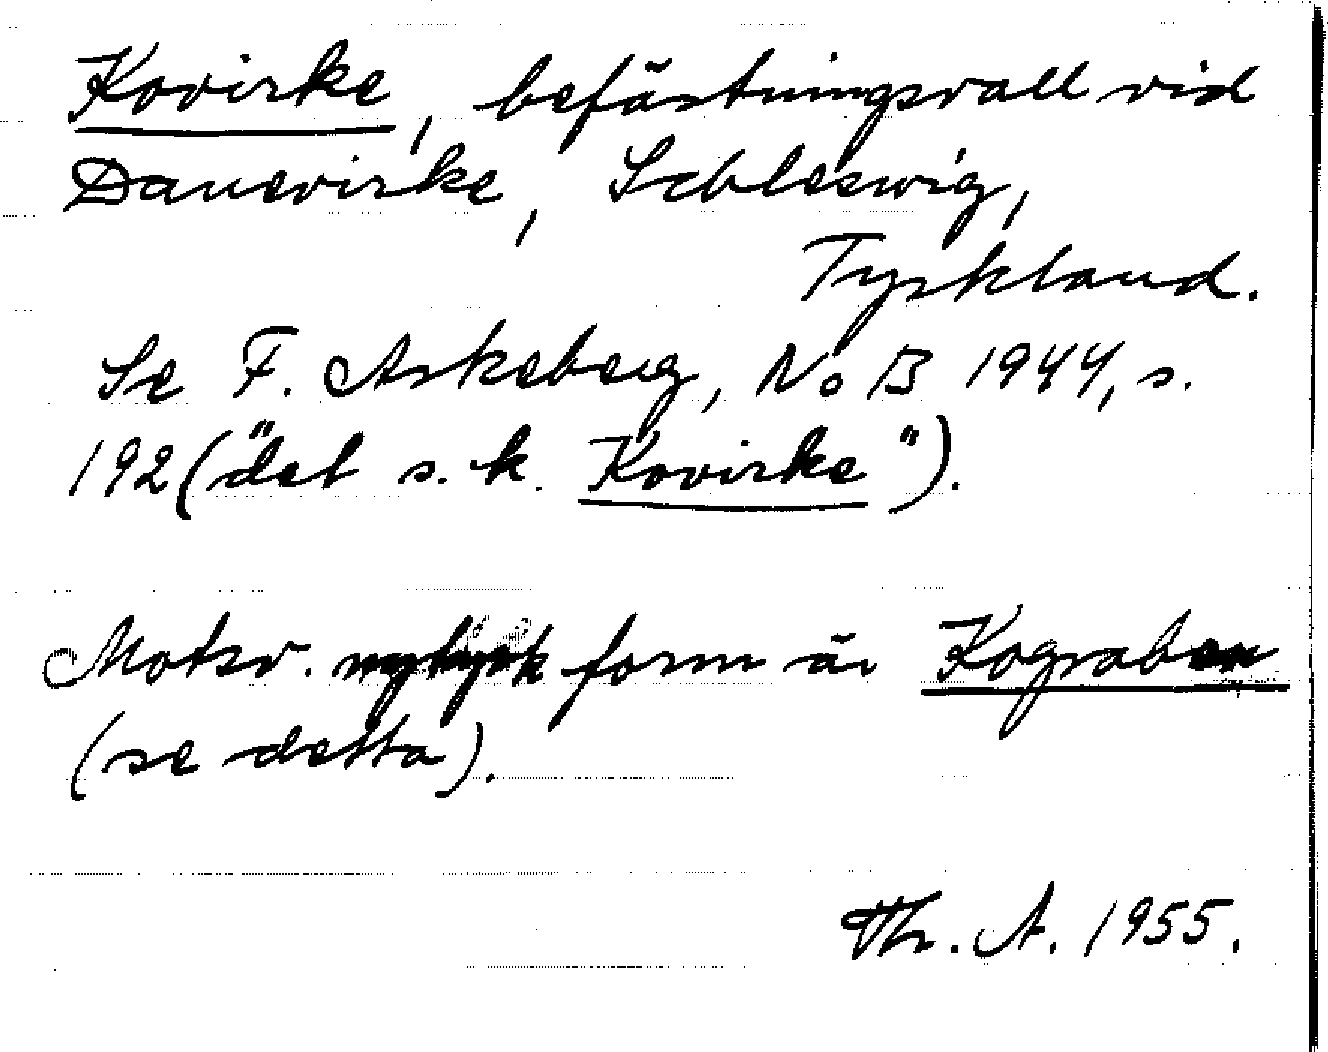 Kovirke, befästningsvall vid
Danevirke, Schleswig,
Tyskland.
Se F. Askeberg, NoB 1944, s.
192 ("det s.k. Kovirke").
Motsv. nytysk form är Kograben
(se detta).
Th. A. 1955.